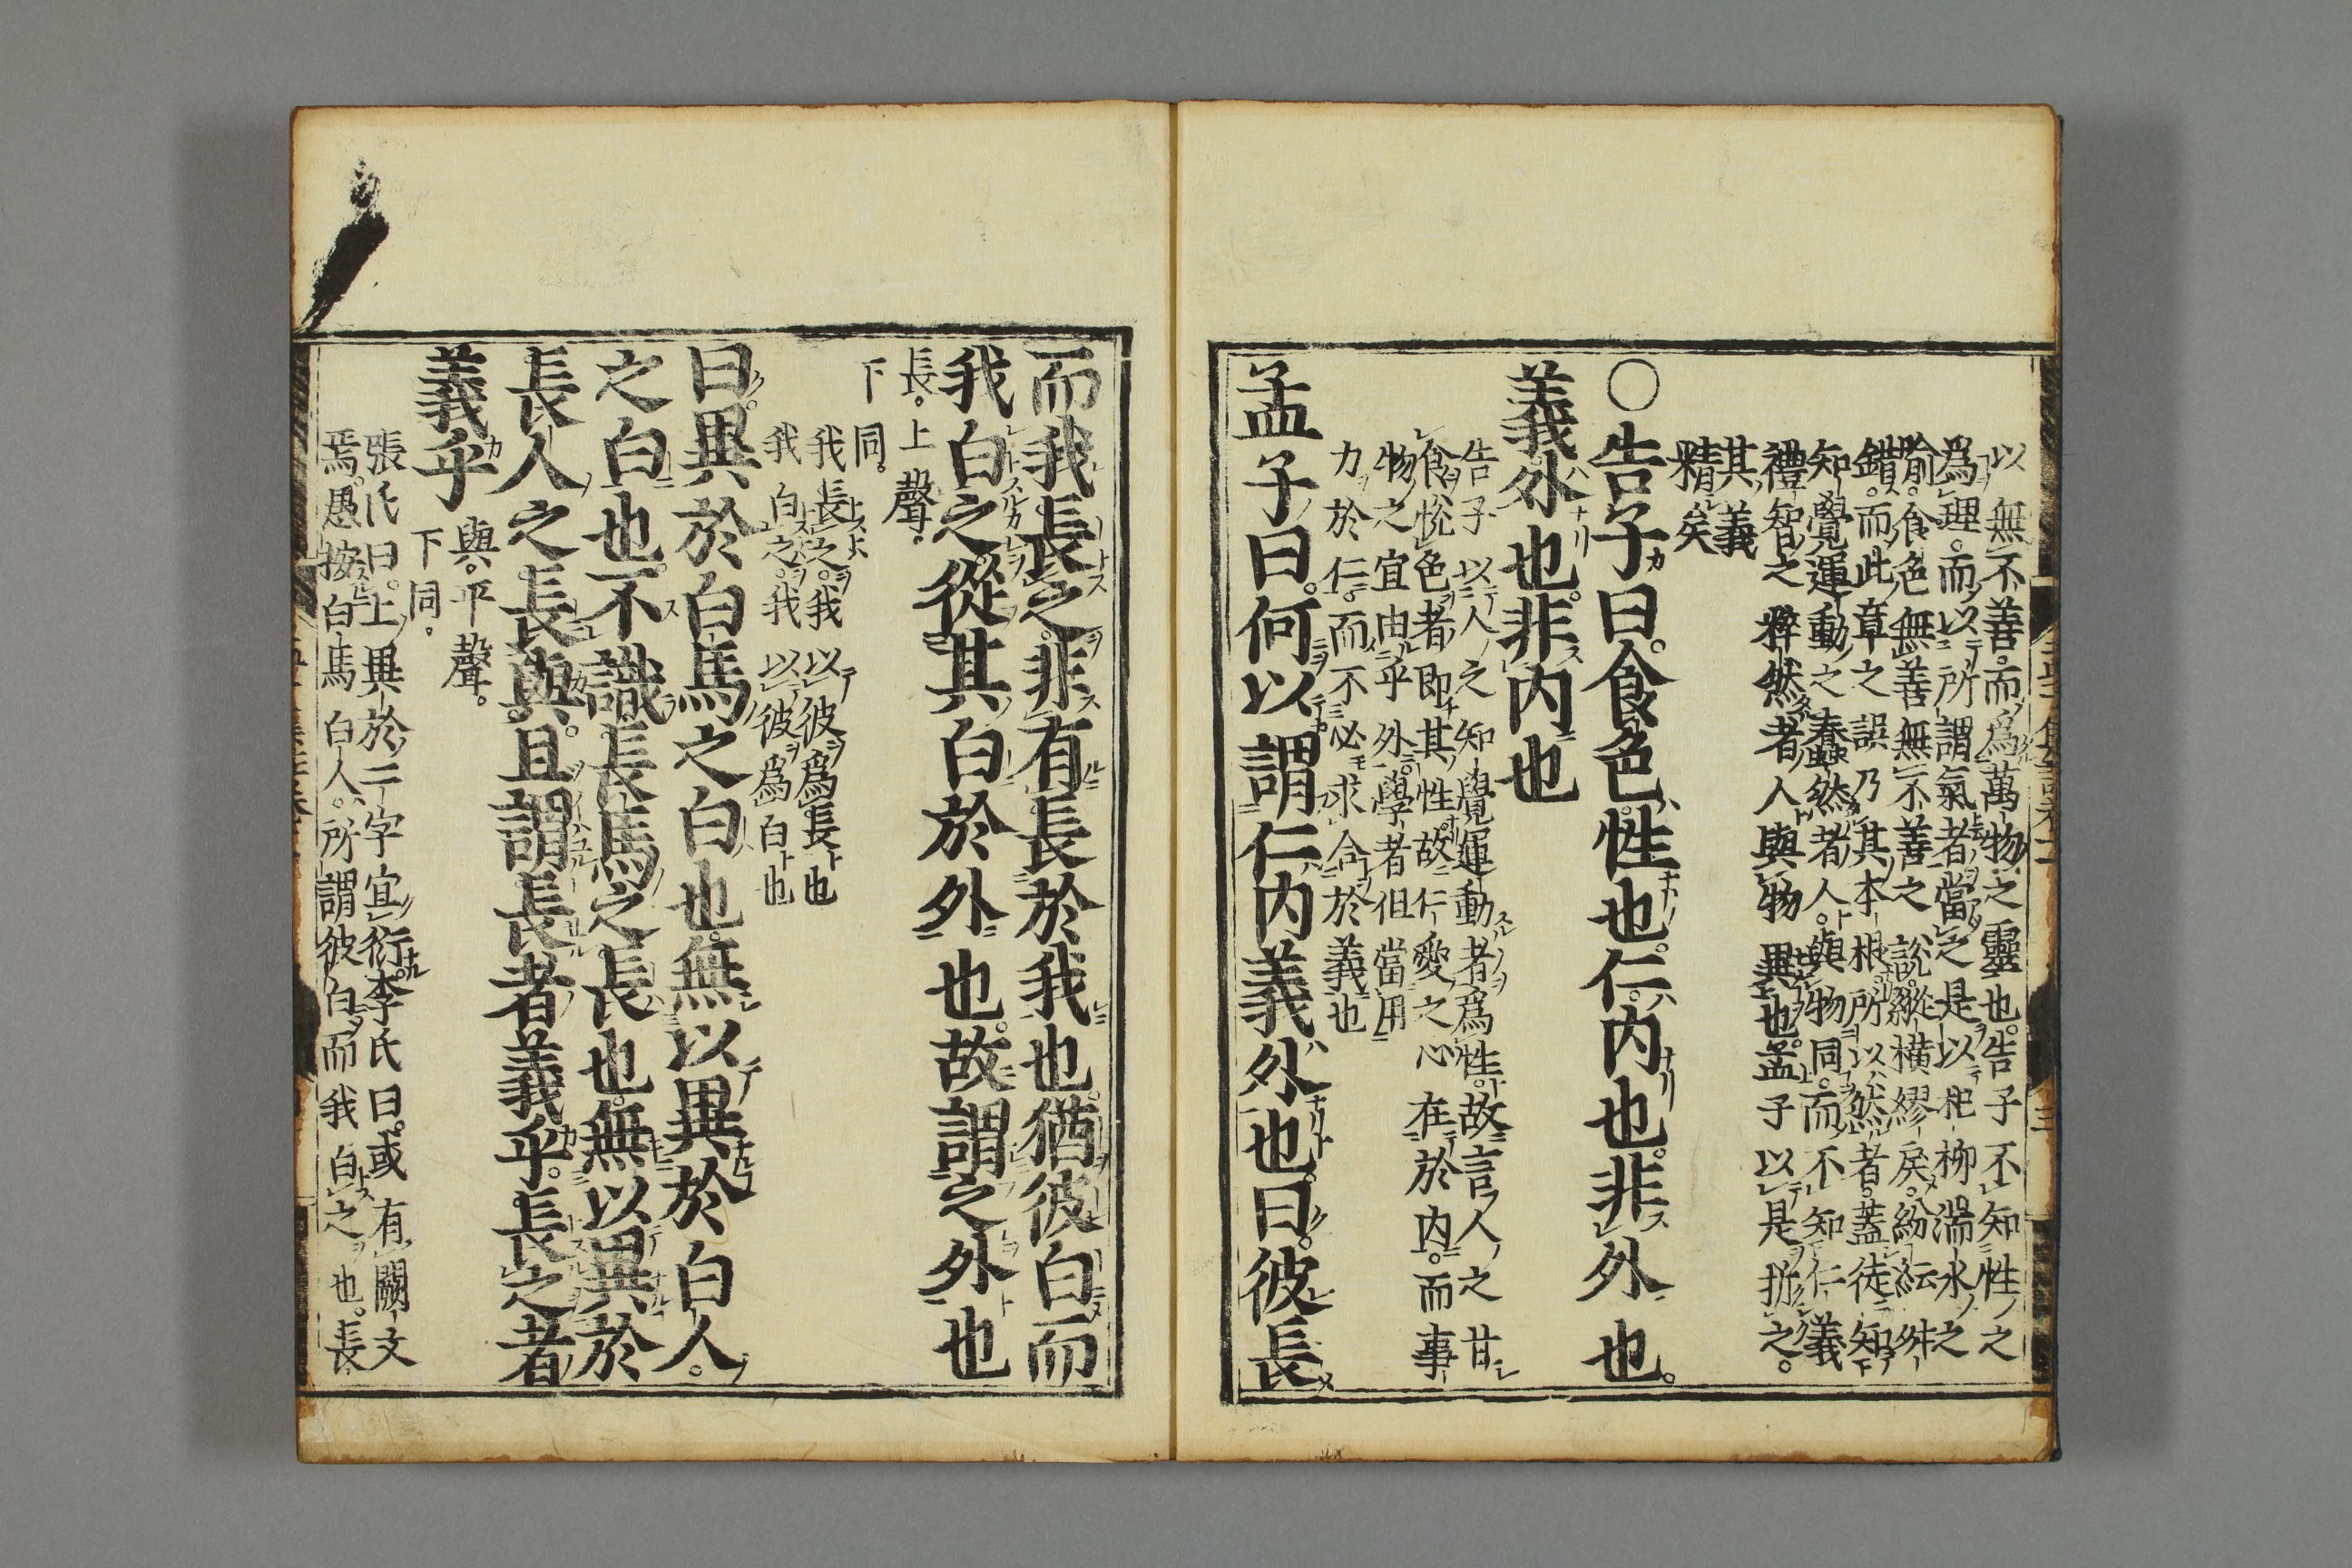 以無不善。而爲萬物之靈也。告子不知性之
爲理。而以所謂氣者當之。是以杞柳湍水之
喻。食色無善無不善之說。縱橫繆戾。紛紜舛
錯。而此章之誤乃其本根。所以然者。蓋徒知
知覺運動之蠢然者。人與物同。而不知仁義
禮智之粹然者。人與物異也。孟子以是折之。
其義
精矣
○告子曰。食色性也。仁内也。非外也。
義外也。非内也
告子以人之知覺運動者爲性。故言人之甘
食悅色者。即其性。故仁愛之心在於内。而事
物之宜由乎外。學者但當用
力於仁。而不必求合於義也
孟子曰。何以謂仁内義外也。曰。彼長
而我長之。非有長於我也。猶彼白而
我白之。從其白於外也。故謂之外也
長。上聲。
下同。
我長之。我以彼爲長也
我白之。我以彼爲白也
曰。異於白馬之白也。無以異於白人
之白也。不識長馬之長也。無以異於
長人之長與。且謂長者義乎。長之者
義乎
與。平聲。
下同。
張氏曰。上異於二字宜衍。李氏曰。或有闕文
焉。愚按白馬白人。所謂彼白而我白之也。長